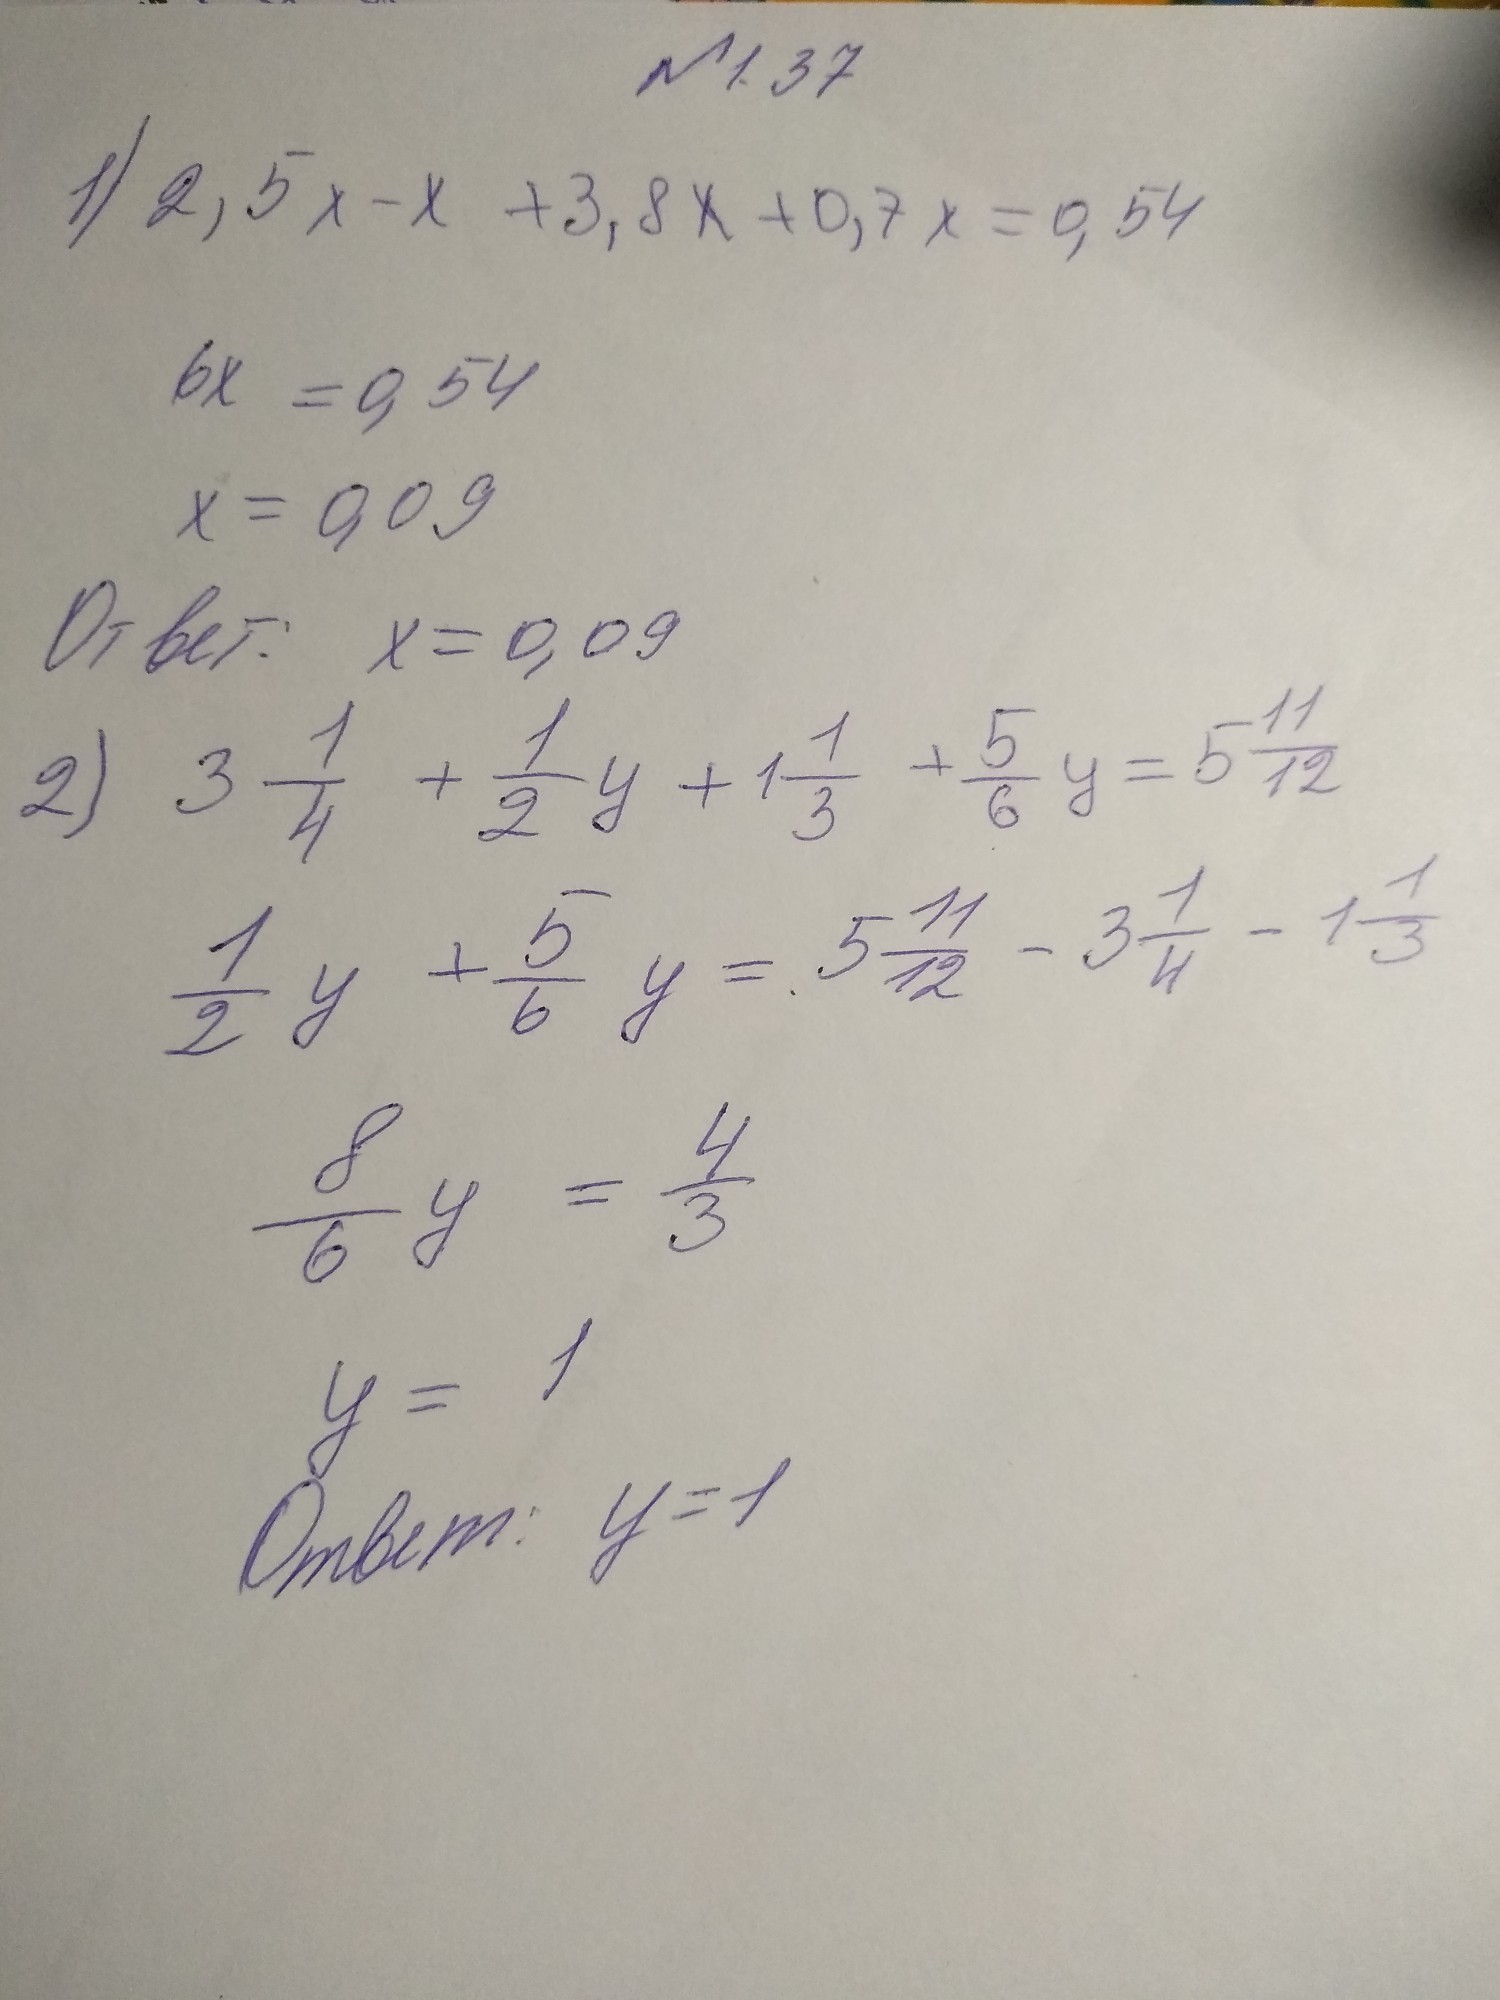 №1.37
1) 2,5x-x+3,8x+0,7x=0,54
6x=0,54
x=0,09
Ответ: x=0,09
2) 3 1/4 + 1/2 y + 1 1/3 + 5/6 y = 5 11/12
1/2 y + 5/6 y = 5 11/12 - 3 1/4 - 1 1/3
8/6 y = 4/3
y = 1
Ответ: y=1